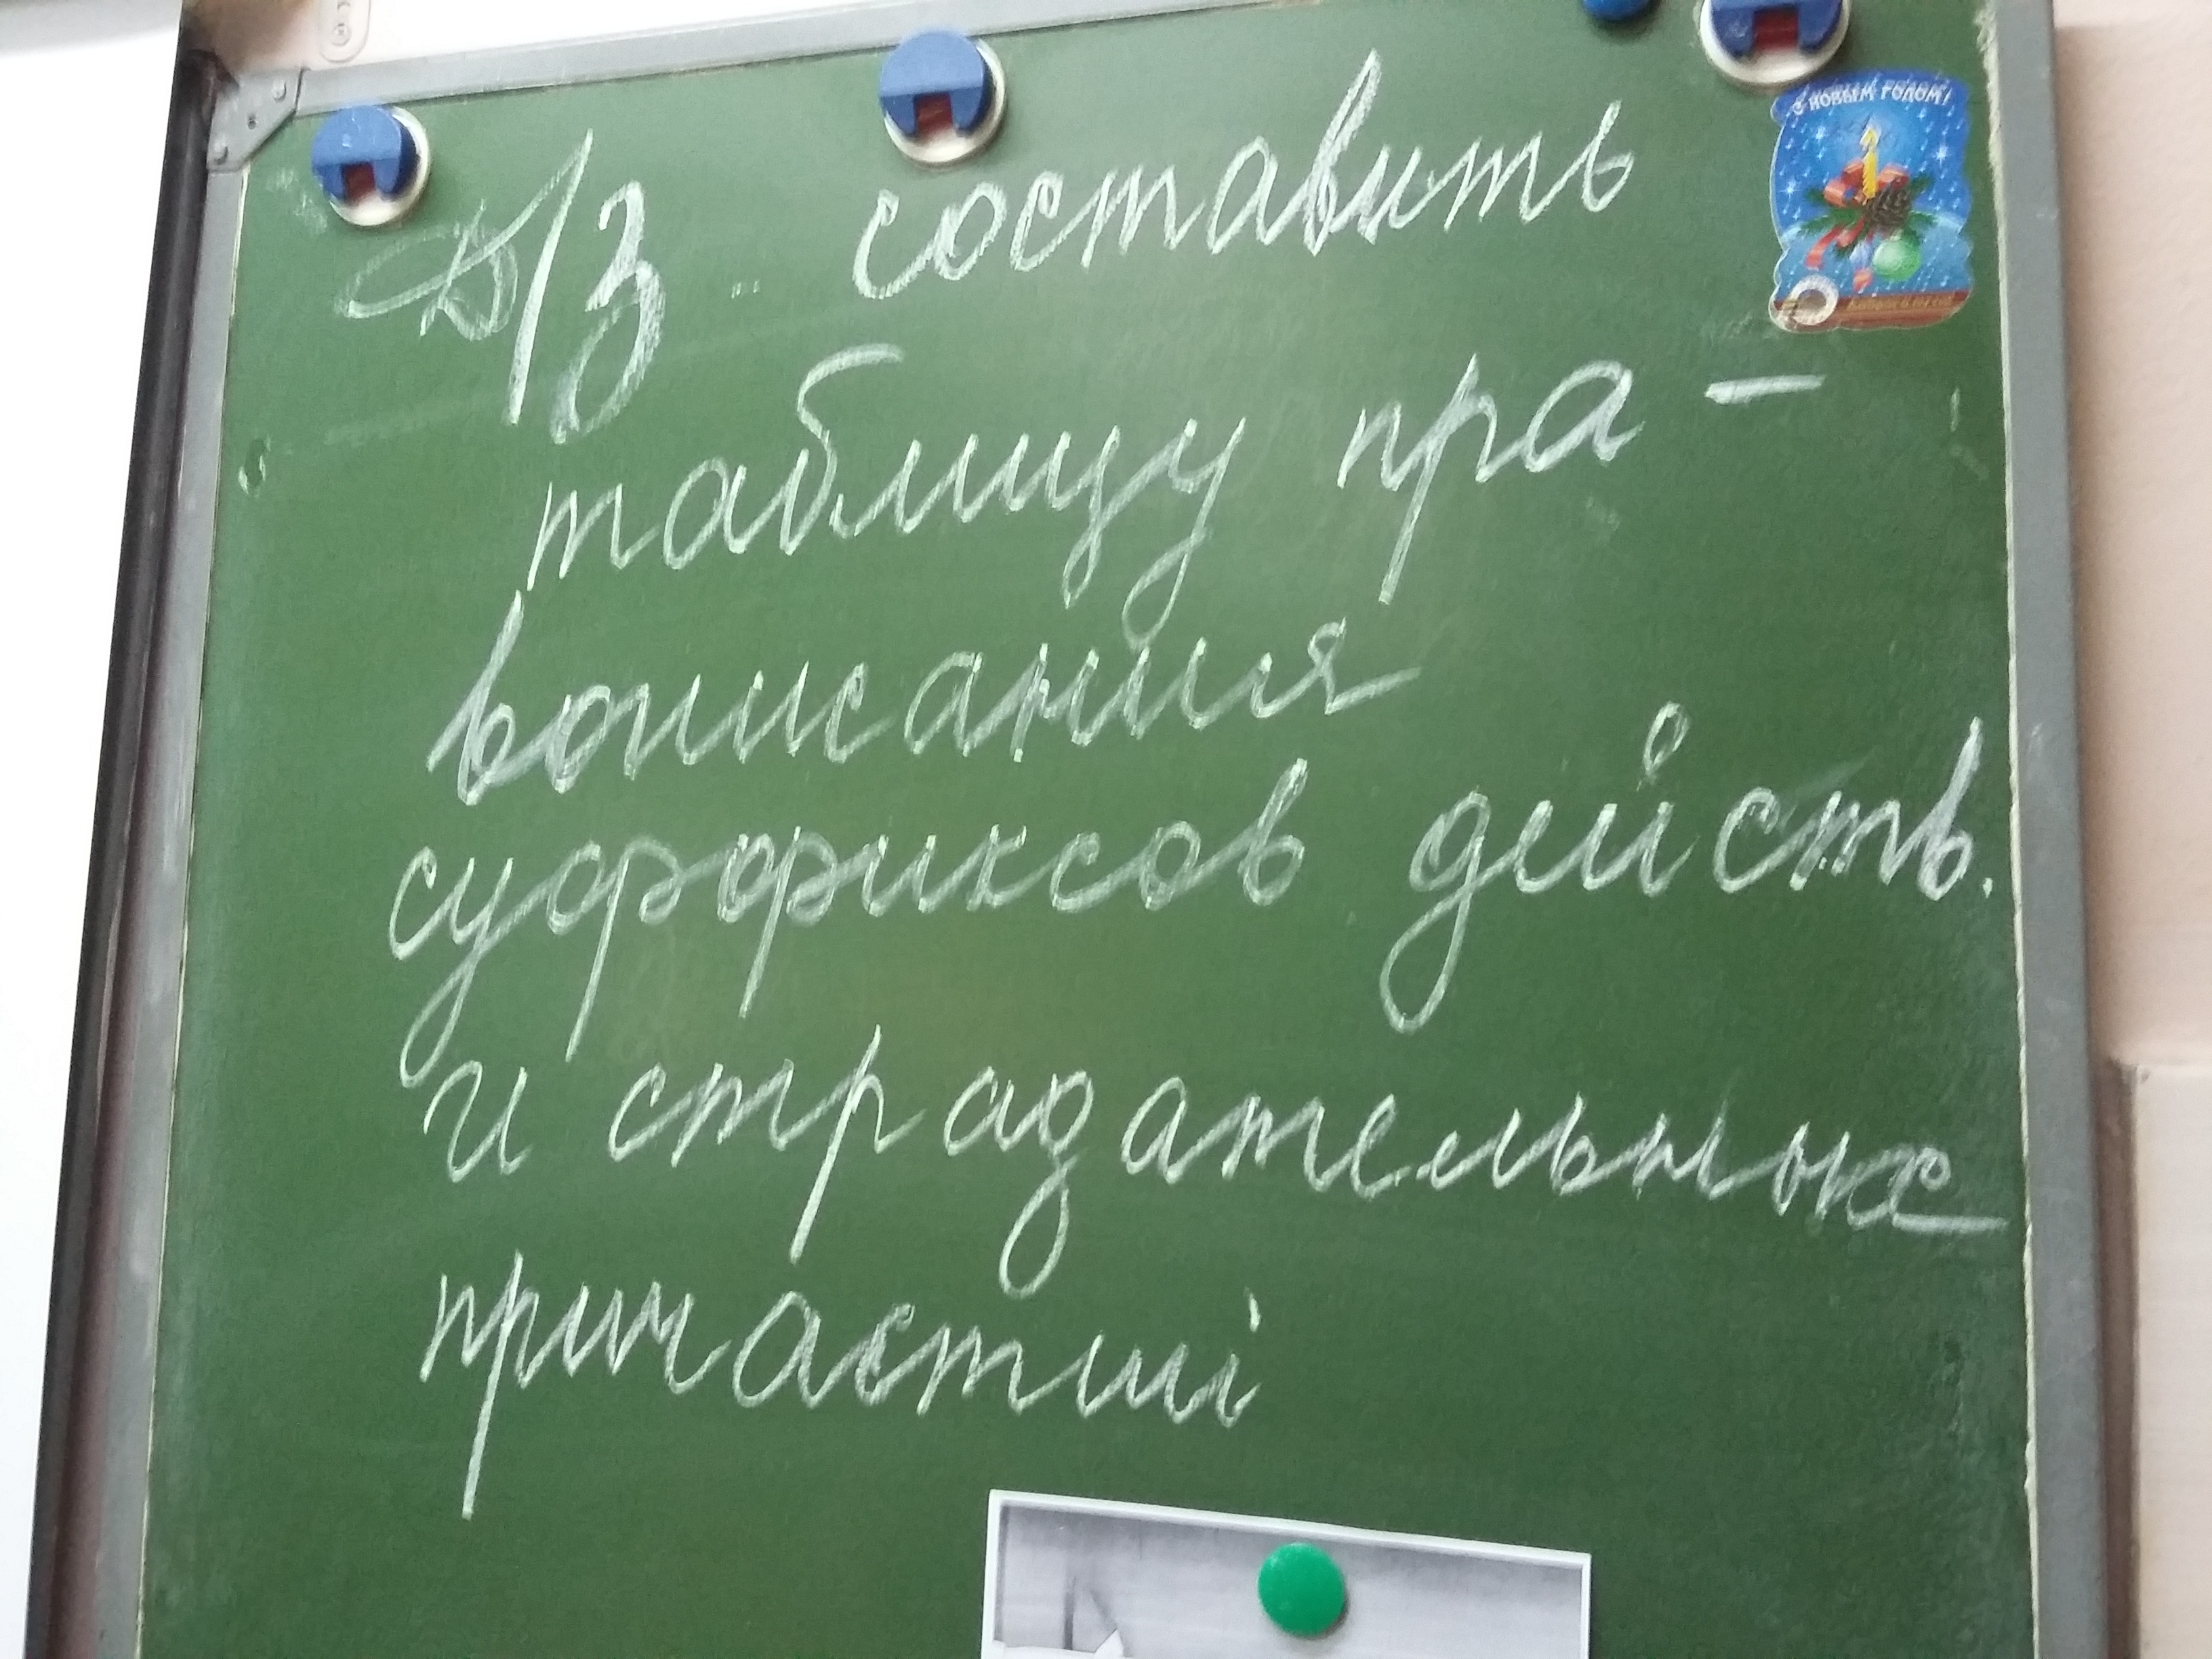 Д/З составить
С НОВЫМ ГОДОМ!
таблицу пра-
вописания
суффиксов действ.
и страдательных
причастий